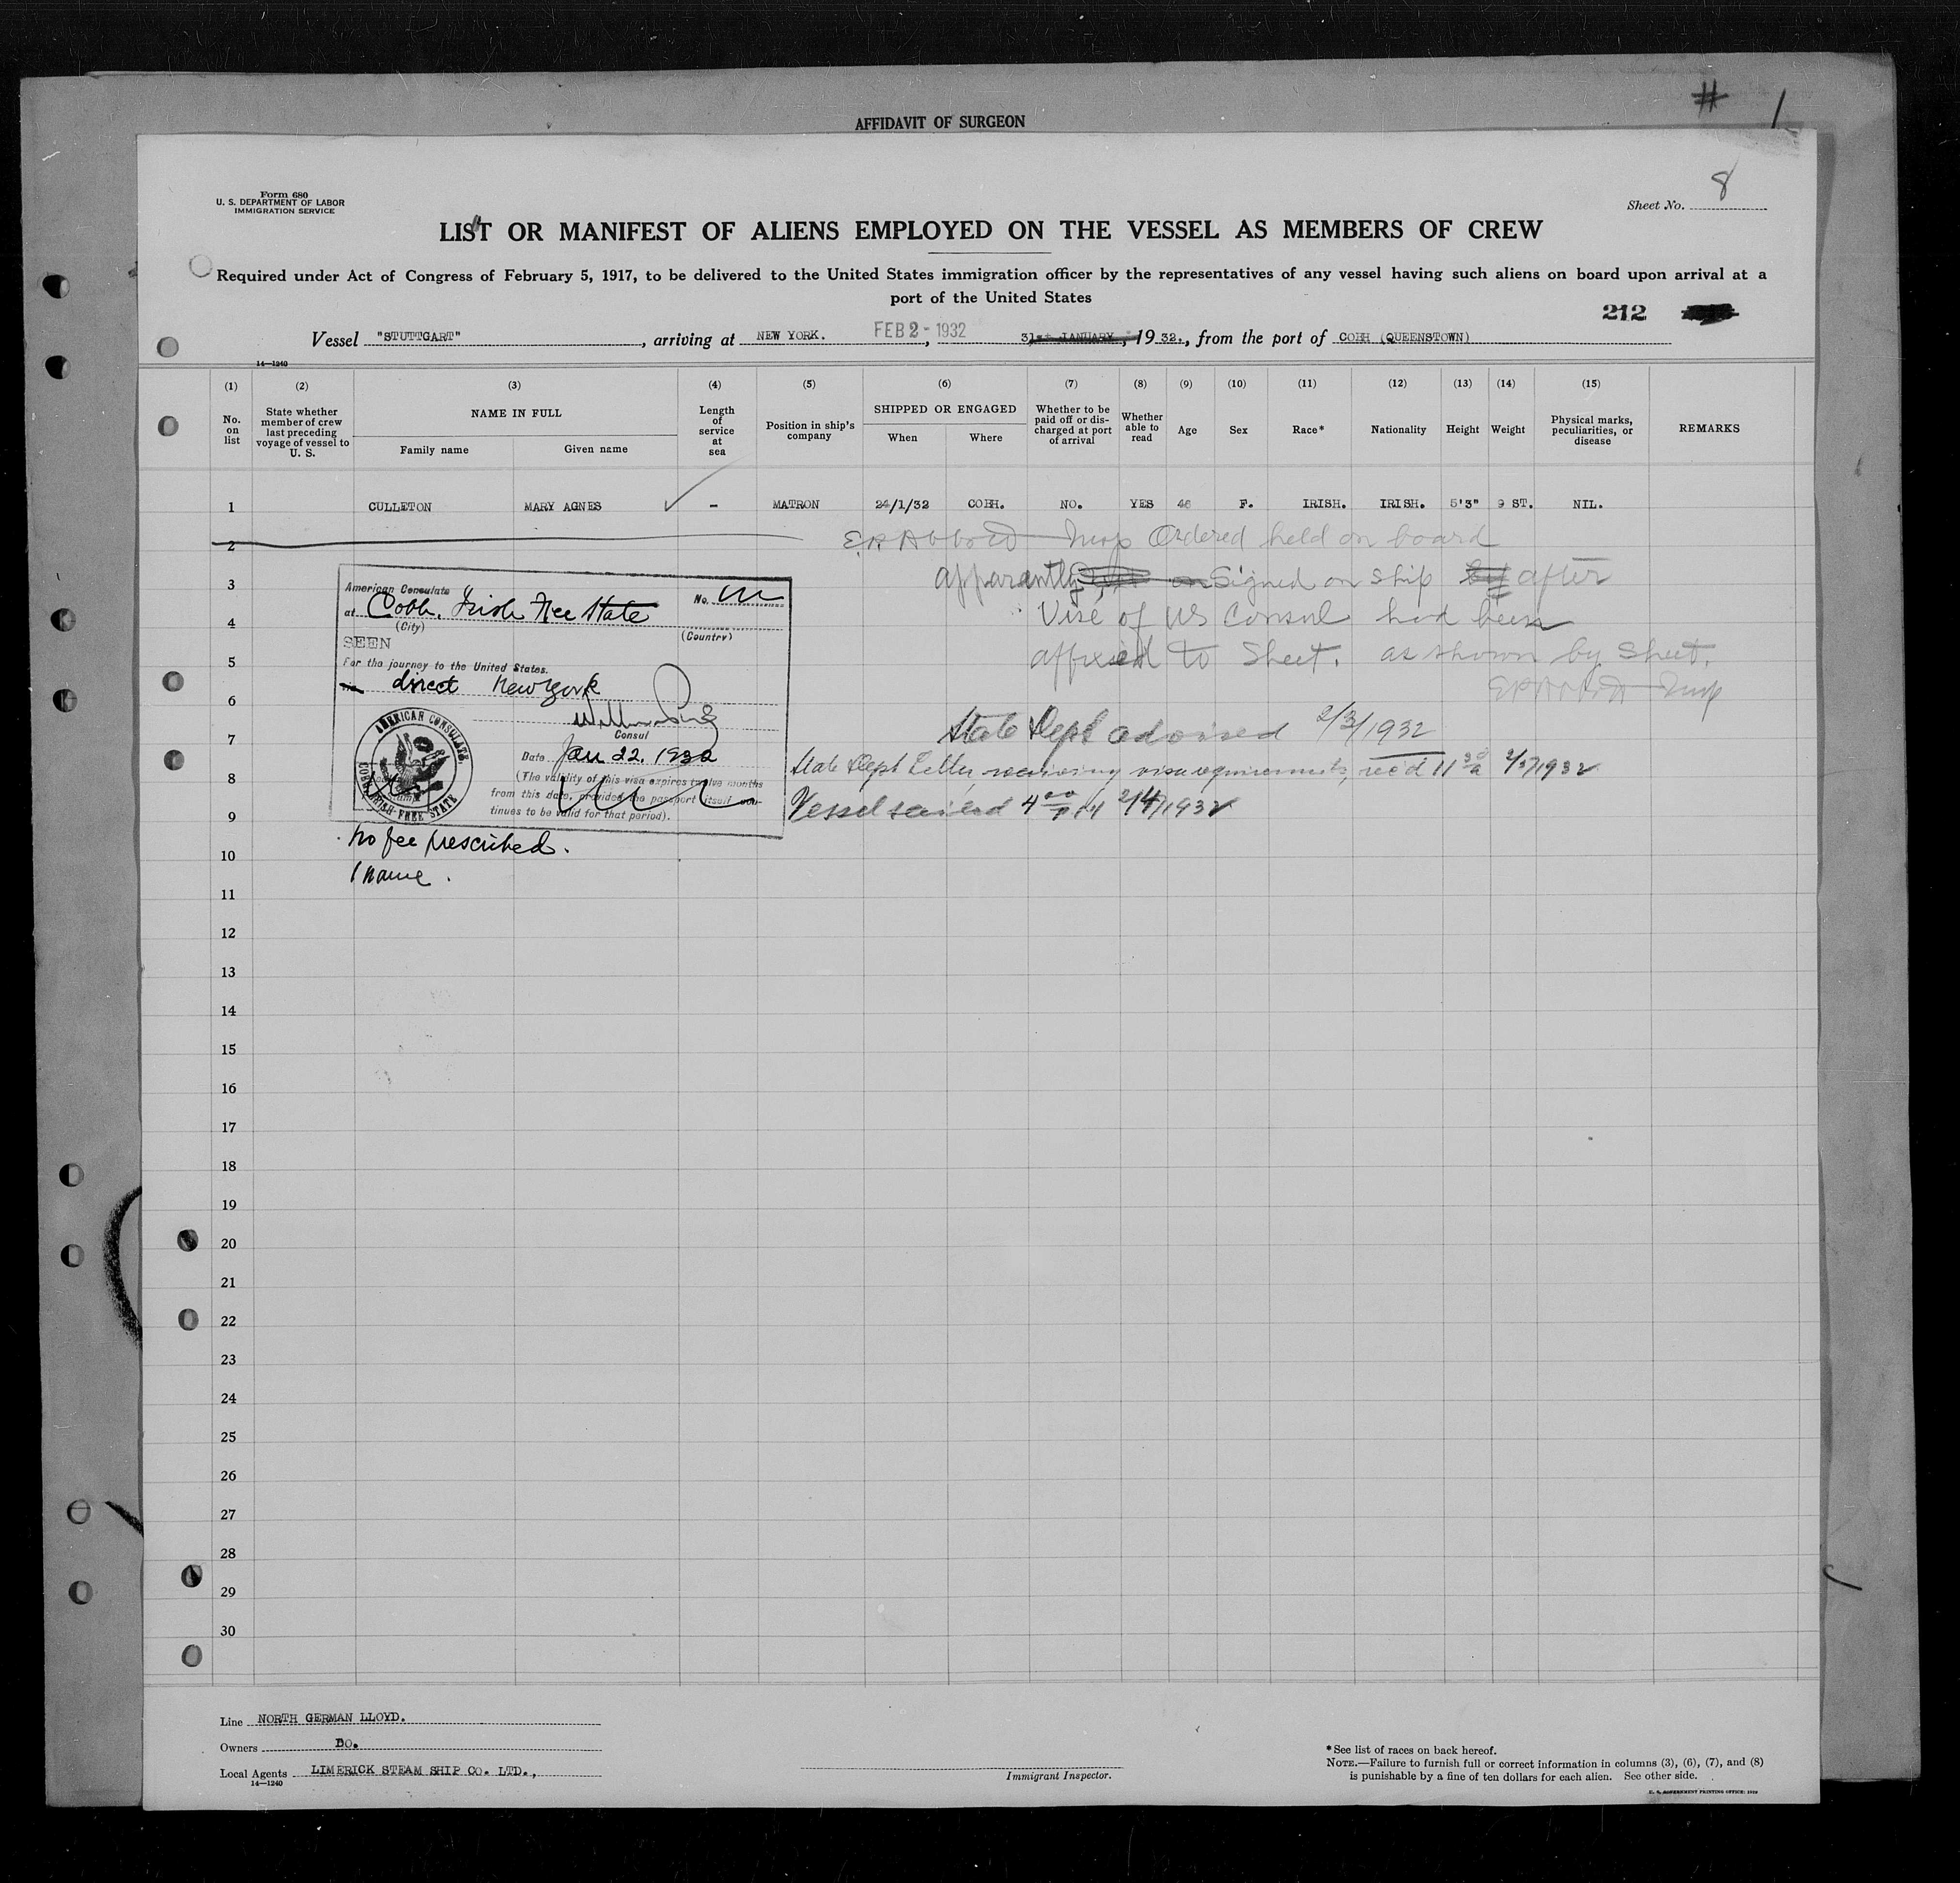 AFFIDAVIT OF SURGEON
# 1
8
Form 680
U. S. DEPARTMENT OF LABOR
IMMIGRATION SERVICE
Sheet No.
LIST OR MANIFEST OF ALIENS EMPLOYED ON THE VESSEL AS MEMBERS OF CREW
Required under Act of Congress of February 5, 1917, to be delivered to the United States immigration officer by the representatives of any vessel having such aliens on board upon arrival at a
port of the United States
212
Vessel "STUTTGART", arriving at NEW YORK. FEB 2 - 1932, 31st JANUARY, 1932., from the port of COBH (QUEENSTOWN)
14—1240
(1) (2) (3) (4) (5) (6) (7) (8) (9) (10) (11) (12) (13) (14) (15)
No. on list
State whether member of crew last preceding voyage of vessel to U. S.
NAME IN FULL
Family name Given name
Length of service at sea
Position in ship's company
SHIPPED OR ENGAGED
When Where
Whether to be paid off or discharged at port of arrival
Whether able to read
Age
Sex
Race*
Nationality
Height
Weight
Physical marks, peculiarities, or disease
REMARKS
1 CULLETON MARY AGNES – MATRON 24/1/32 COBH. NO. YES 46 F. IRISH. IRISH. 5'3" 9 ST. NIL.
2 Insp Ordered held on board
3 apparantly on Signed on Ship by after
4 Visé of US Consul had been
5 affixed to Sheet. as shown by Sheet.
6 Insp
7 State Dept advised 2/3/1932
8 State Dept Letter visa requirements, rec'd 11 30 a 2/3/1932
9 Vessel sailed 4 00 PM 2/4/1932
10
11
12
13
14
15
16
17
18
19
20
21
22
23
24
25
26
27
28
29
30
American Consulate
at Cobh, Irish Free State No.
(City) (Country)
SEEN
For the journey to the United States.
via direct New York
Consul
Date Jan 22. 1932
(The validity of this visa expires twelve months
from this date, provided the passport itself con-
tinues to be valid for that period).
AMERICAN CONSULATE
COBH, IRISH FREE STATE
No fee prescribed.
1 name.
Line NORTH GERMAN LLOYD.
Owners DO.
Local Agents LIMERICK STEAM SHIP CO. LTD.,
14—1240
Immigrant Inspector.
*See list of races on back hereof.
NOTE.—Failure to furnish full or correct information in columns (3), (6), (7), and (8)
is punishable by a fine of ten dollars for each alien. See other side.
U. S. GOVERNMENT PRINTING OFFICE: 1929